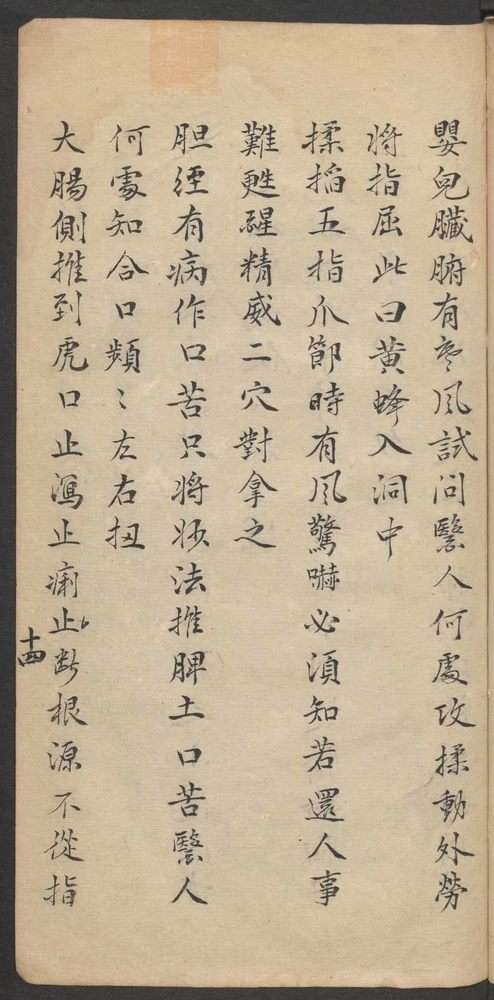 嬰兒臟腑有寒風試问醫人何處攻揉動外勞
将指屈此曰黃蜂入洞中
揉掐五指爪節時有风驚嚇必湏知若還人事
難甦醒精威二穴對拿之
胆經有病作口苦只将妙法推脾土口苦醫人
何處知合口頻〻左右扭
大腸側推到虎口止瀉止痢止断根源不從指
十四